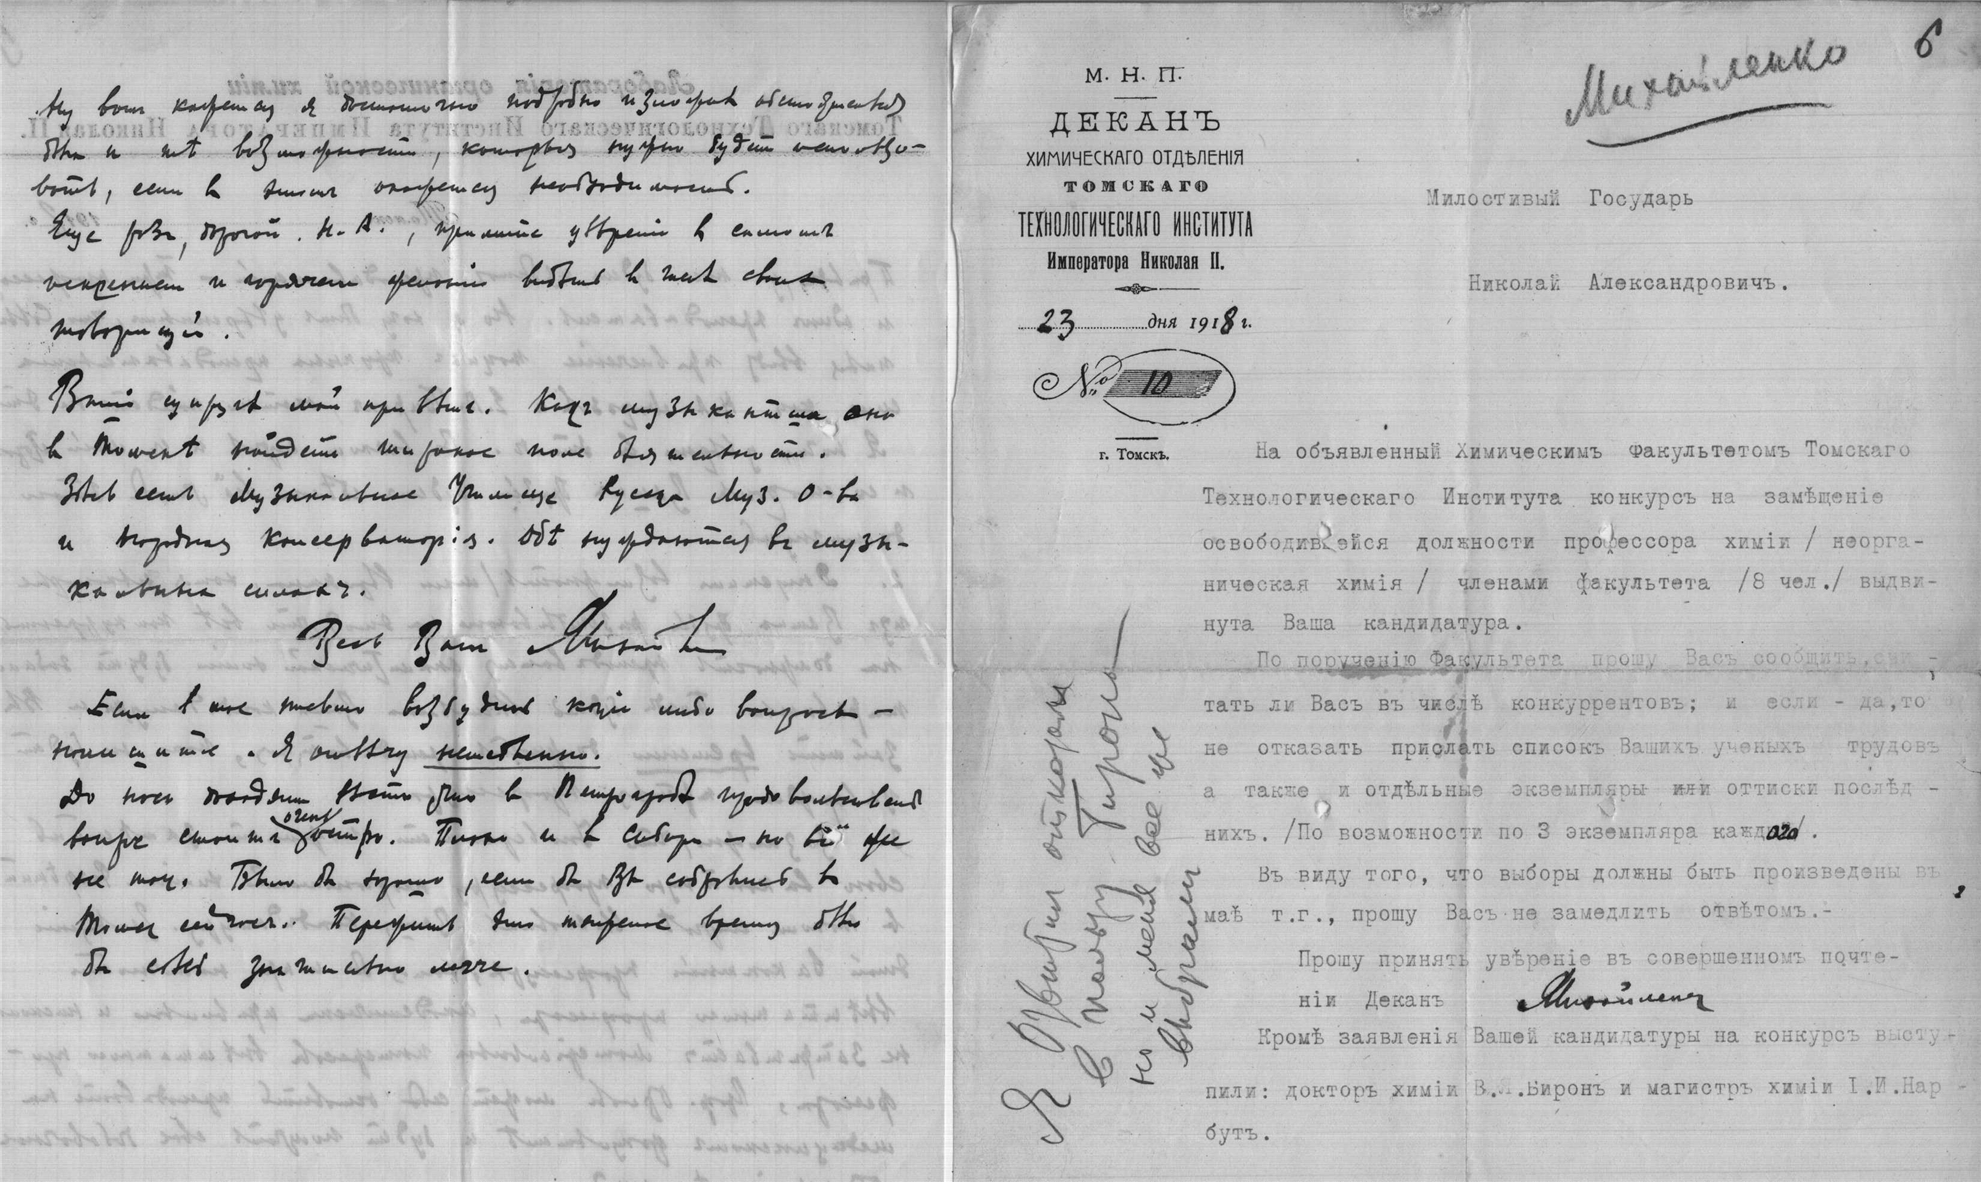 Ну вотъ кажется я достаточно подробно изложилъ обстоятельства
дѣла и тѣ возможности, которыя нужно будетъ использо-
вать, если въ этомъ окажется необходимость.
Еще разъ, дорогой Н. А., примите увѣреніе въ самомъ
искреннемъ и горячемъ желаніи видѣть въ числѣ своихъ
товарищей.
Вашей супругѣ мой привѣтъ. Какъ музыкантша она
въ Томскѣ найдетъ широкое поле дѣятельности.
Здѣсь есть Музыкальное Училище Русск. Муз. О-ва
и народная консерваторія. Обѣ нуждаются въ музы-
кальныхъ силахъ.
Весь Вашъ
Если мое письмо возбудитъ какіе либо вопросы —
пишите. Я отвѣчу немедленно.
До насъ доходятъ въ Петроградѣ продовольственный
вопросъ стоитъ очень остро. Плохо и въ Сибири — но все же
не такъ. Было бы хорошо, если бы Вы собрались въ
Томскъ сейчасъ. Пережить это тяжелое время было
бы здѣсь значительно легче.
6
Михайленко
М. Н. П.
ДЕКАНЪ
ХИМИЧЕСКАГО ОТДѢЛЕНІЯ
ТОМСКАГО
ТЕХНОЛОГИЧЕСКАГО ИНСТИТУТА
Императора Николая II.
23 дня 1918 г.
№ 10
г. Томскъ.
Милостивый Государь
Николай Александровичъ.
На объявленный Химическимъ Факультетомъ Томскаго
Технологическаго Института конкурсъ на замѣщеніе
освободившейся должности профессора химіи / неорга-
ническая химія / членами факультета /8 чел./ выдви-
нута Ваша кандидатура.
По порученію Факультета прошу Васъ сообщить, счи-
тать ли Васъ въ числѣ конкуррентовъ; и если - да, то
не отказать прислать списокъ Вашихъ ученыхъ трудовъ
а также и отдѣльные экземпляры или оттиски послѣд -
нихъ. /По возможности по 3 экземпляра каждаго/.
Въ виду того, что выборы должны быть произведены въ
маѣ т.г., прошу Васъ не замедлить отвѣтомъ.-
Прошу принять увѣреніе въ совершенномъ почте-
ніи Деканъ Михайленко
Кромѣ заявленія Вашей кандидатуры на конкурсъ высту-
пили: докторъ химіи Биронъ и магистръ химіи І.И.Нар -
бутъ.
Я отъ
въ пользу Бирона
но меня все же
выбрали